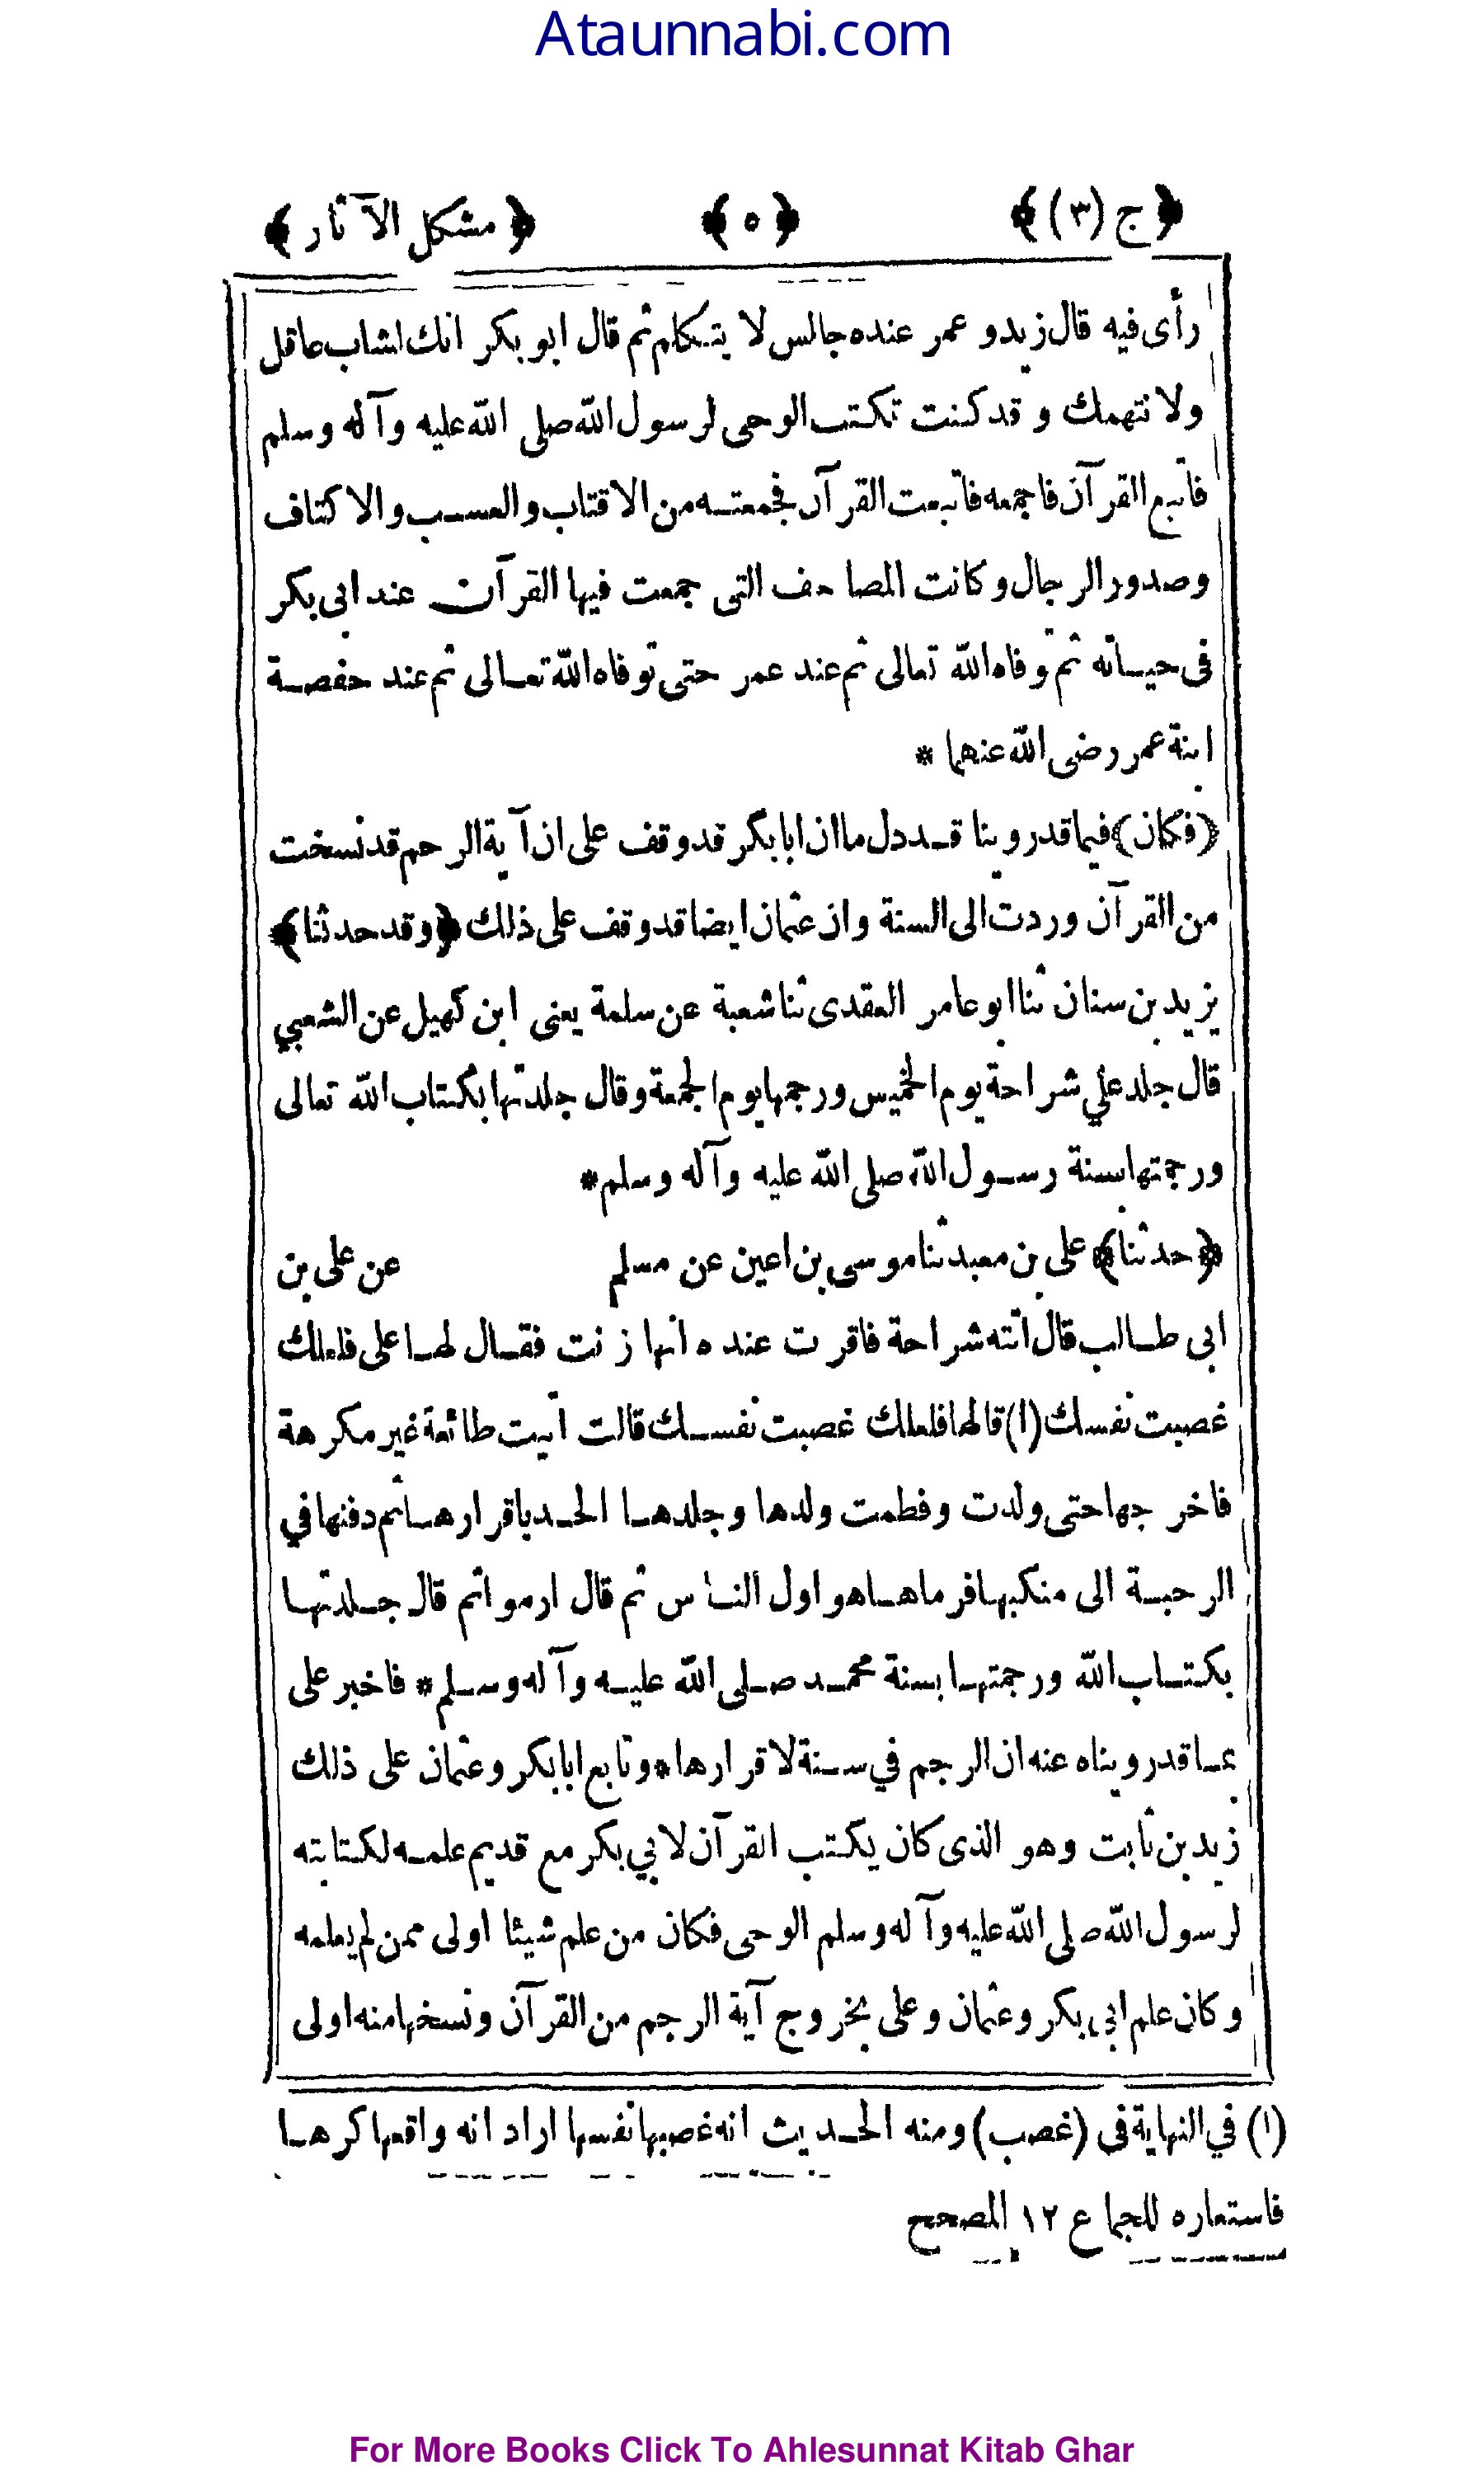 Ataunnabi.com
﴿ج (٣)﴾ ﴿٥﴾ ﴿مشكل الآثار﴾
رأى فيه قال زيد و عمر عنده جالس لا يتكلم ثم قال ابو بكر انك لشاب عاقل
ولا نتهمك و قد كنت تكتب الوحى لرسول الله صلى الله عليه وآله وسلم
فاتبع القرآن فاجمعه فاتبعت القرآن فجمعته من الاقتاب والعسب والاكتاف
وصدور الرجال وكانت المصاحف التى جمعت فيها القرآن عند ابى بكر
فى حياته ثم توفاه الله تعالى ثم عند عمر حتى توفاه الله تعالى ثم عند حفصة
ابنة عمر رضى الله عنهما *
﴿فكان﴾ فيما قدروينا قد دل ما ان ابا بكر قد وقف على ان آية الرجم قد نسخت
من القرآن وردت الى السنة وان عثمان ايضا قد وقف على ذلك ﴿وقد حدثنا﴾
يزيد بن سنان ثنا ابو عامر العقدى ثنا شعبة عن سلمة يعنى ابن كهيل عن الشعبي
قال جلد علي شراحة يوم الخميس ورجمها يوم الجمعة وقال جلدتها بكتاب الله تعالى
ورجمتها بسنة رسول الله صلى الله عليه وآله وسلم *
﴿حدثنا﴾ على بن معبد ثنا موسى بن اعين عن مسلم عن على بن
ابى طالب قال اتته شراحة فاقرت عنده انها زنت فقال لها على فلعلك
غصبت نفسك (١) قالها فلعلك غصبت نفسك قالت اتيت طائعة غير مكرهة
فاخرجها حتى ولدت وفطمت ولدها وجلدها الحد باقرارها ثم دفنها في
الرحبة الى منكبها فرماها هو اول الناس ثم قال ارموا ثم قال جلدتها
بكتاب الله ورجمتها بسنة محمد صلى الله عليه وآله وسلم * فاخبر على
بما قدرويناه عنه ان الرجم في سنة لاقرارها * وتابع ابا بكر وعثمان على ذلك
زيد بن ثابت وهو الذى كان يكتب القرآن لابي بكر مع قديم علمه لكتابته
لرسول الله صلى الله عليه وآله وسلم الوحى فكان من علم شيئا اولى ممن لم يعلمه
وكان علم ابي بكر وعثمان وعلى بخروج آية الرجم من القرآن ونسخها منه اولى
(١) في النهاية فى (غصب) ومنه الحديث انه غصبها نفسها اراد انه واقعها كرها
فاستعاره للجماع ١٢ المصحح
For More Books Click To Ahlesunnat Kitab Ghar